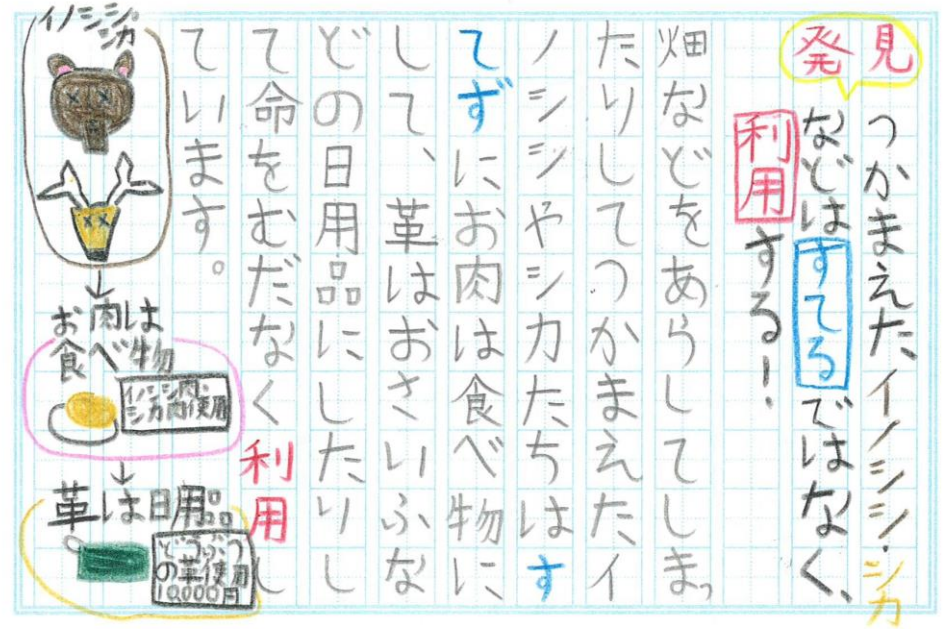 発見
つかまえた、イノシシ・シカ
などはすてるではなく、
利用する!
畑などをあらしてしまっ
たりしてつかまえたイ
ノシシやシカたちはす
てずにお肉は食べ物に
して、革はおさいふな
どの日用品にしたりし
て命をむだなく利用し
ています。
イノシシ
シカ
お肉は
食べ物
イノシシ肉・
シカ肉使用
革は日用品
どうぶつ
の革使用
10,000円